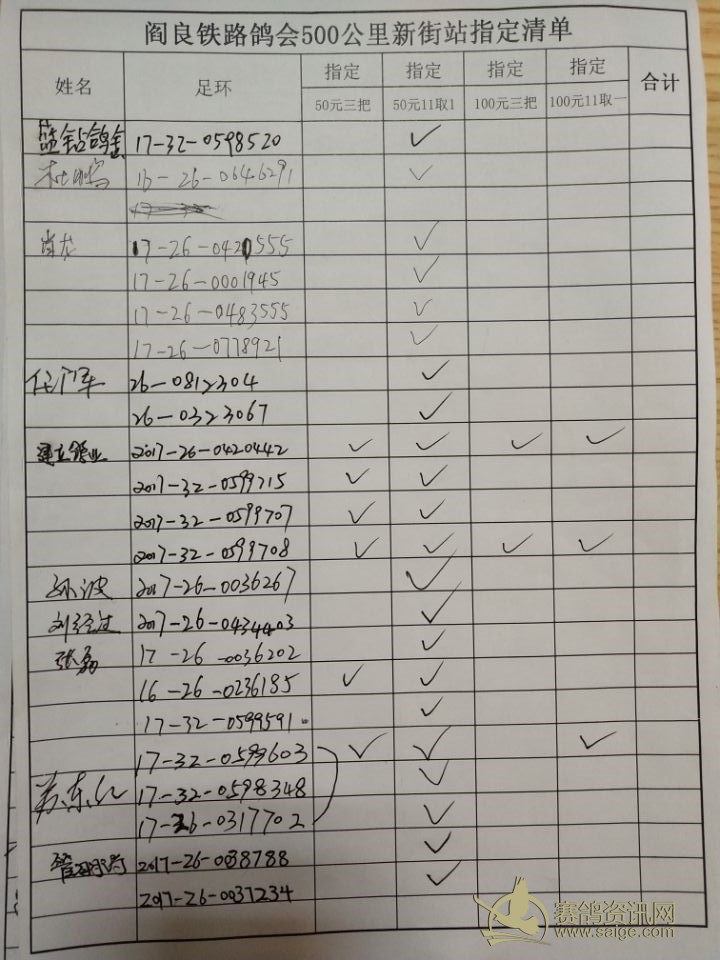 阎良铁路鸽会500公里新街站指定清单
姓名 足环 指定 指定 指定 指定 合计
50元三把 50元11取1 100元三把 100元11取一
蓝钻鸽舍 17-32-0598520 ✓
杜鹏 16-26-0646291 ✓
肖龙 17-26-0420555 ✓
17-26-0001945 ✓
17-26-0483555 ✓
17-26-0778921 ✓
任门车 26-0812304 ✓
26-0323067 ✓
建立鸽业 2017-26-0420442 ✓ ✓ ✓ ✓
2017-32-0599715 ✓ ✓
2017-32-0599707 ✓ ✓
2017-32-0599708 ✓ ✓ ✓ ✓
孙波 2017-26-0036267 ✓
刘经过 2017-26-0434403 ✓
张磊 17-26-0036202 ✓
16-26-0236185 ✓ ✓
17-32-0599591 ✓
17-32-0599603 ✓ ✓ ✓
17-32-0598348 ✓
17-26-0317702 ✓
2017-26-0038788 ✓
2017-26-0037234 ✓
赛鸽资讯网
www.saige.com